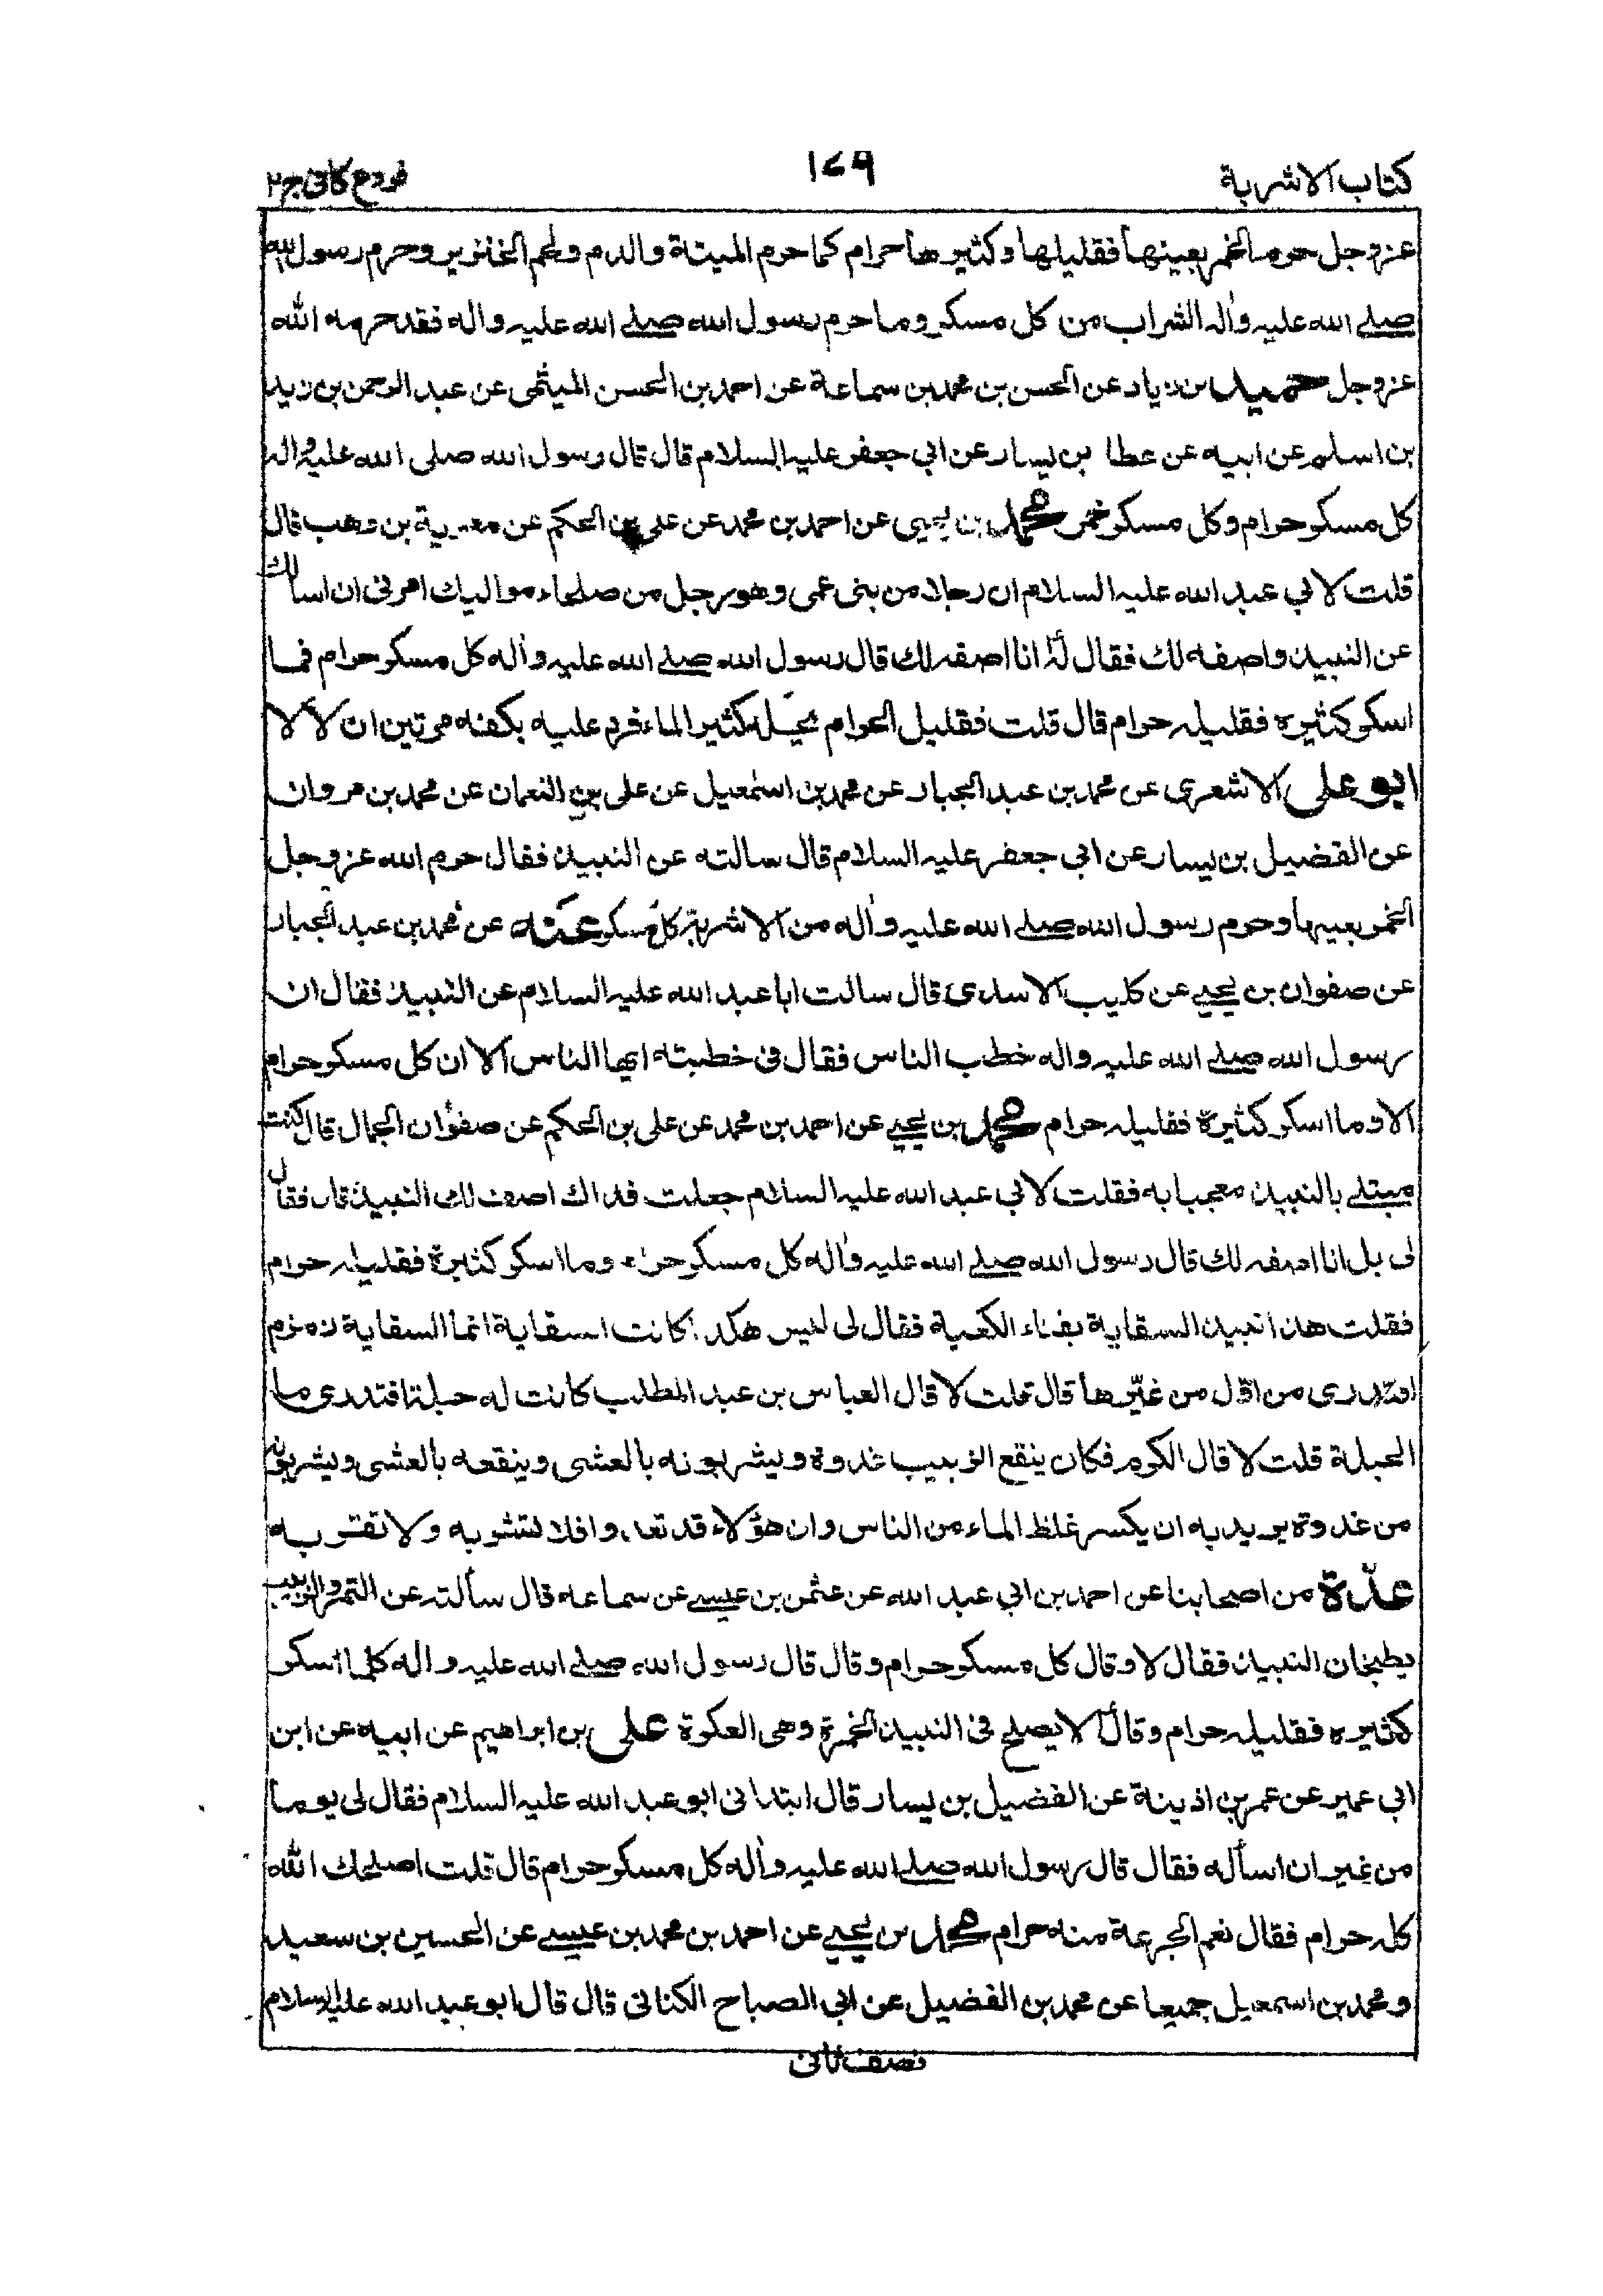 كتاب الاشربة
١٤٩
فروع كافى ج٢
عز وجل حرم الخمر بعينها فقليلها وكثيرها حرام كما حرم الميتة والدم ولحم الخنزير وحرم رسول الله
صلى الله عليه وآله الشراب من كل مسكر وما حرم رسول الله صلى الله عليه واله فقد حرمه الله
عز وجل حميد بن زياد عن الحسن بن محمد بن سماعة عن احمد بن الحسن الميثمى عن عبد الرحمن بن زيد
بن اسلم عن ابيه عن عطا بن يسار عن ابي جعفر عليه السلام قال قال رسول الله صلى الله عليه واله
كل مسكر حرام وكل مسكر خمر محمد بن يحيى عن احمد بن محمد عن على بن الحكم عن معوية بن وهب قال
قلت لابي عبد الله عليه السلام ان رجلا من بنى عمى وهو رجل من صلحاء مواليك امرنى ان اسالك
عن النبيذ واصفه لك فقال له انا اصفه لك قال رسول الله صلى الله عليه وآله كل مسكر حرام فما
اسكر كثيره فقليله حرام قال قلت فقليل الحرام يحله كثير الماء فرد عليه بكفه مرتين ان لا لا
ابو على الاشعرى عن محمد بن عبد الجبار عن محمد بن اسمعيل عن على بن النعمان عن محمد بن مروان
عن الفضيل بن يسار عن ابي جعفر عليه السلام قال سالته عن النبيذ فقال حرم الله عز وجل
الخمر بعينها وحرم رسول الله صلى الله عليه وآله من الاشربة كل مسكر عنه عن محمد بن عبد الجبار
عن صفوان بن يحيى عن كليب الاسدى قال سالت ابا عبد الله عليه السلام عن النبيذ فقال ان
رسول الله صلى الله عليه واله خطب الناس فقال فى خطبته ايها الناس الا ان كل مسكر حرام
الا وما اسكر كثيرة فقليله حرام محمد بن يحيى عن احمد بن محمد عن على بن الحكم عن صفوان الجمال قال كنت
مبتلى بالنبيذ معجبا به فقلت لابي عبد الله عليه السلام جعلت فداك اصف لك النبيذ قال فقال
لى بل انا اصفه لك قال رسول الله صلى الله عليه وآله كل مسكر حرام وما اسكر كثيرة فقليله حرام
فقلت هذا نبيذ السقاية بفناء الكعبة فقال لى ليس هكذا كانت السقاية انما السقاية زمزم
افتدرى من اول من غيرها قال قلت لا قال العباس بن عبد المطلب كانت له حبلة افتدرى ما
الحبلة قلت لا قال الكرم فكان ينقع الزبيب غدوة ويشربونه بالعشى وينقعه بالعشى ويشربونه
من غدوة يريد به ان يكسر غلظ الماء من الناس وان هؤلاء قد تعدوا فلا تشربه ولا تقربه
عدّة من اصحابنا عن احمد بن ابي عبد الله عن عثمن بن عيسى عن سماعه قال سألته عن التمر والزبيب
يطبخان النبيذ فقال لا وقال كل مسكر حرام وقال قال رسول الله صلى الله عليه واله كلما اسكر
كثيره فقليله حرام وقال لا يصلح فى النبيذ الخمرة وهى العكرة على بن ابراهيم عن ابيه عن ابن
ابي عمير عن عمر بن اذينة عن الفضيل بن يسار قال ابتدانى ابو عبد الله عليه السلام فقال لى يوما
من غير ان اسأله فقال قال رسول الله صلى الله عليه وآله كل مسكر حرام قال قلت اصلحك الله
كله حرام فقال نعم الجرعة منه حرام محمد بن يحيى عن احمد بن محمد بن عيسى عن الحسين بن سعيد
ومحمد بن اسمعيل جميعا عن محمد بن الفضيل عن ابي الصباح الكنانى قال قال ابو عبد الله عليه السلام
نصف ثانى